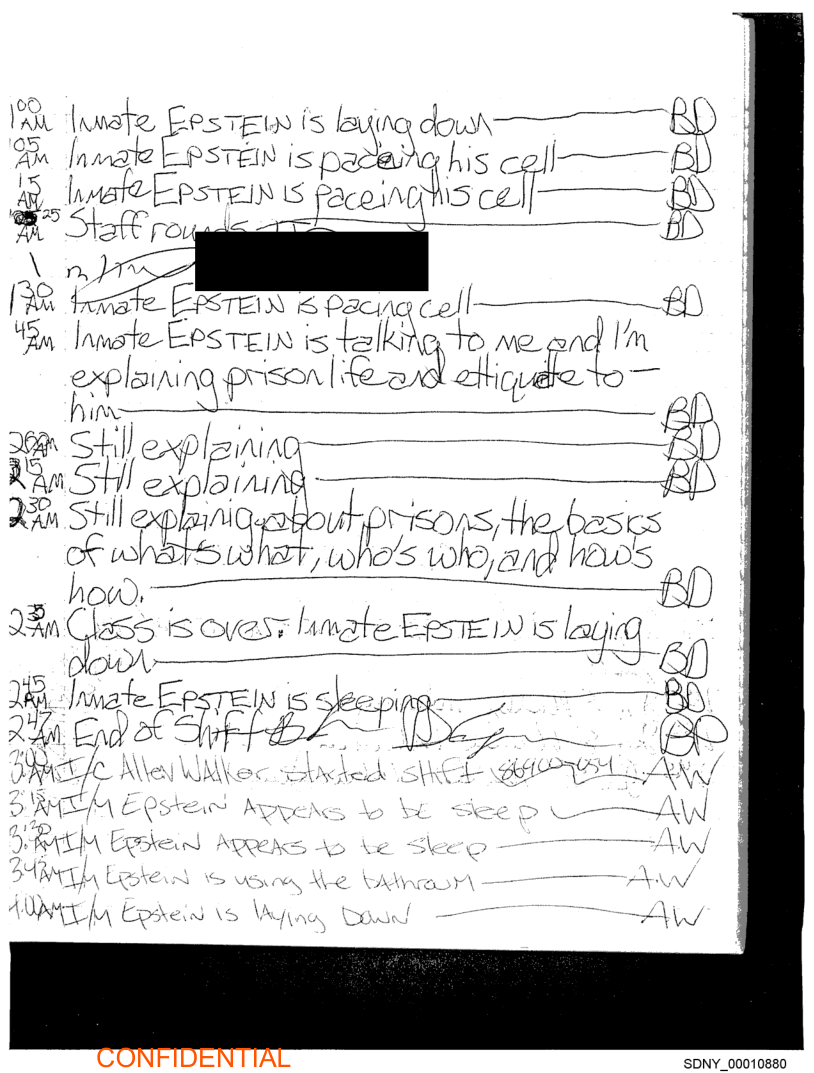 1:00 AM Inmate EPSTEIN is laying down BD
05 AM Inmate EPSTEIN is paceing his cell BD
15 AM Inmate EPSTEIN is paceing his cell BD
25 AM Staff rounds BD
1:30 AM Inmate EPSTEIN is pacing cell BD
45 AM Inmate EPSTEIN is talking to me and I'm
explaining prison life and ettiquitte to –
him BD
2:00 AM Still explaining BD
2:15 AM Still explaining BD
2:30 AM Still explainig about prisons, the basics
of what's what, who's who, and how's
how. BD
2:35 AM Class is over. Inmate EPSTEIN is laying
down BD
2:45 AM Inmate EPSTEIN is sleeping BD
2:47 AM End of Shift BD
3:00 AM I/C Allen Walker started shift AW
3:15 AM I/M Epstein Appears to be sleep AW
3:30 AM I/M Epstein Appears to be sleep AW
3:42 AM I/M Epstein is using the bathroum AW
4:00 AM I/M Epstein is laying Down AW
CONFIDENTIAL
SDNY_00010880